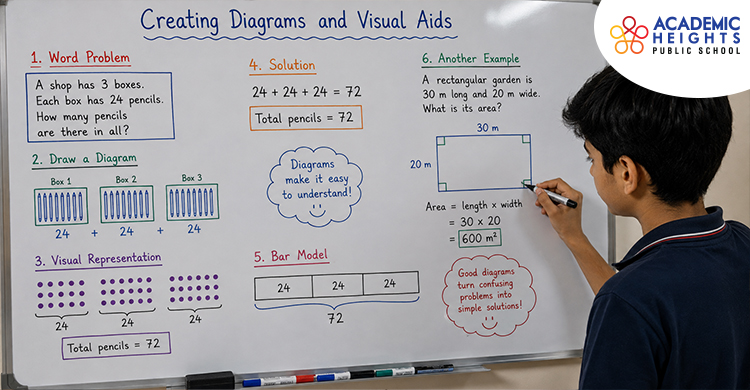 Creating Diagrams and Visual Aids
ACADEMIC
HEIGHTS
PUBLIC SCHOOL
1. Word Problem
A shop has 3 boxes.
Each box has 24 pencils.
How many pencils
are there in all?
2. Draw a Diagram
Box 1 Box 2 Box 3
24 + 24 + 24
3. Visual Representation
24 24 24
Total pencils = 72
4. Solution
24 + 24 + 24 = 72
Total pencils = 72
Diagrams
make it easy
to understand!
5. Bar Model
24 24 24
72
6. Another Example
A rectangular garden is
30 m long and 20 m wide.
What is its area?
30 m
20 m
Area = length x width
= 30 x 20
= 600 m²
Good diagrams
turn confusing
problems into
simple solutions!